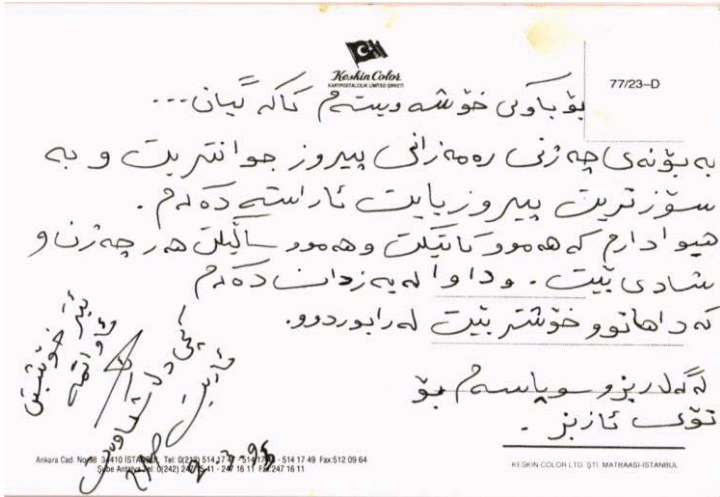 Keskin Color
KARTPOSTALCILIK LIMITED ŞIRKETI
77/23-D
بۆ باوکی خۆشەویستەم کاکە گیان...
بە بۆنەی چەژنی ڕەمەزانی پیرۆز جوانتریت و بە
سۆزتریت پیرۆزبایت ئاراستە دەکەم.
هیوادارم کە هەموو کاتێکت و هەموو ساڵێکت هەر چەژن و
شادی بێت. وداوا لە یەزدان دەکەم
کە داهاتوو خۆشتر بێت لە رابوردوو.
لەگەڵ ڕێزو سوپاسەم بۆ
تۆی ئازیز.
ئیتر خۆشبیت
Ankara Cad. No:98 34410 İSTANBUL Tel: 0(212) 514 17 47 - 514 17 48 - 514 17 49 Fax:512 09 64
Şube Antalya Tel: 0(242) 247 15 41 - 247 16 11 Fax:247 16 11
KESKIN COLOR LTD. ŞTI. MATBAASI-İSTANBUL